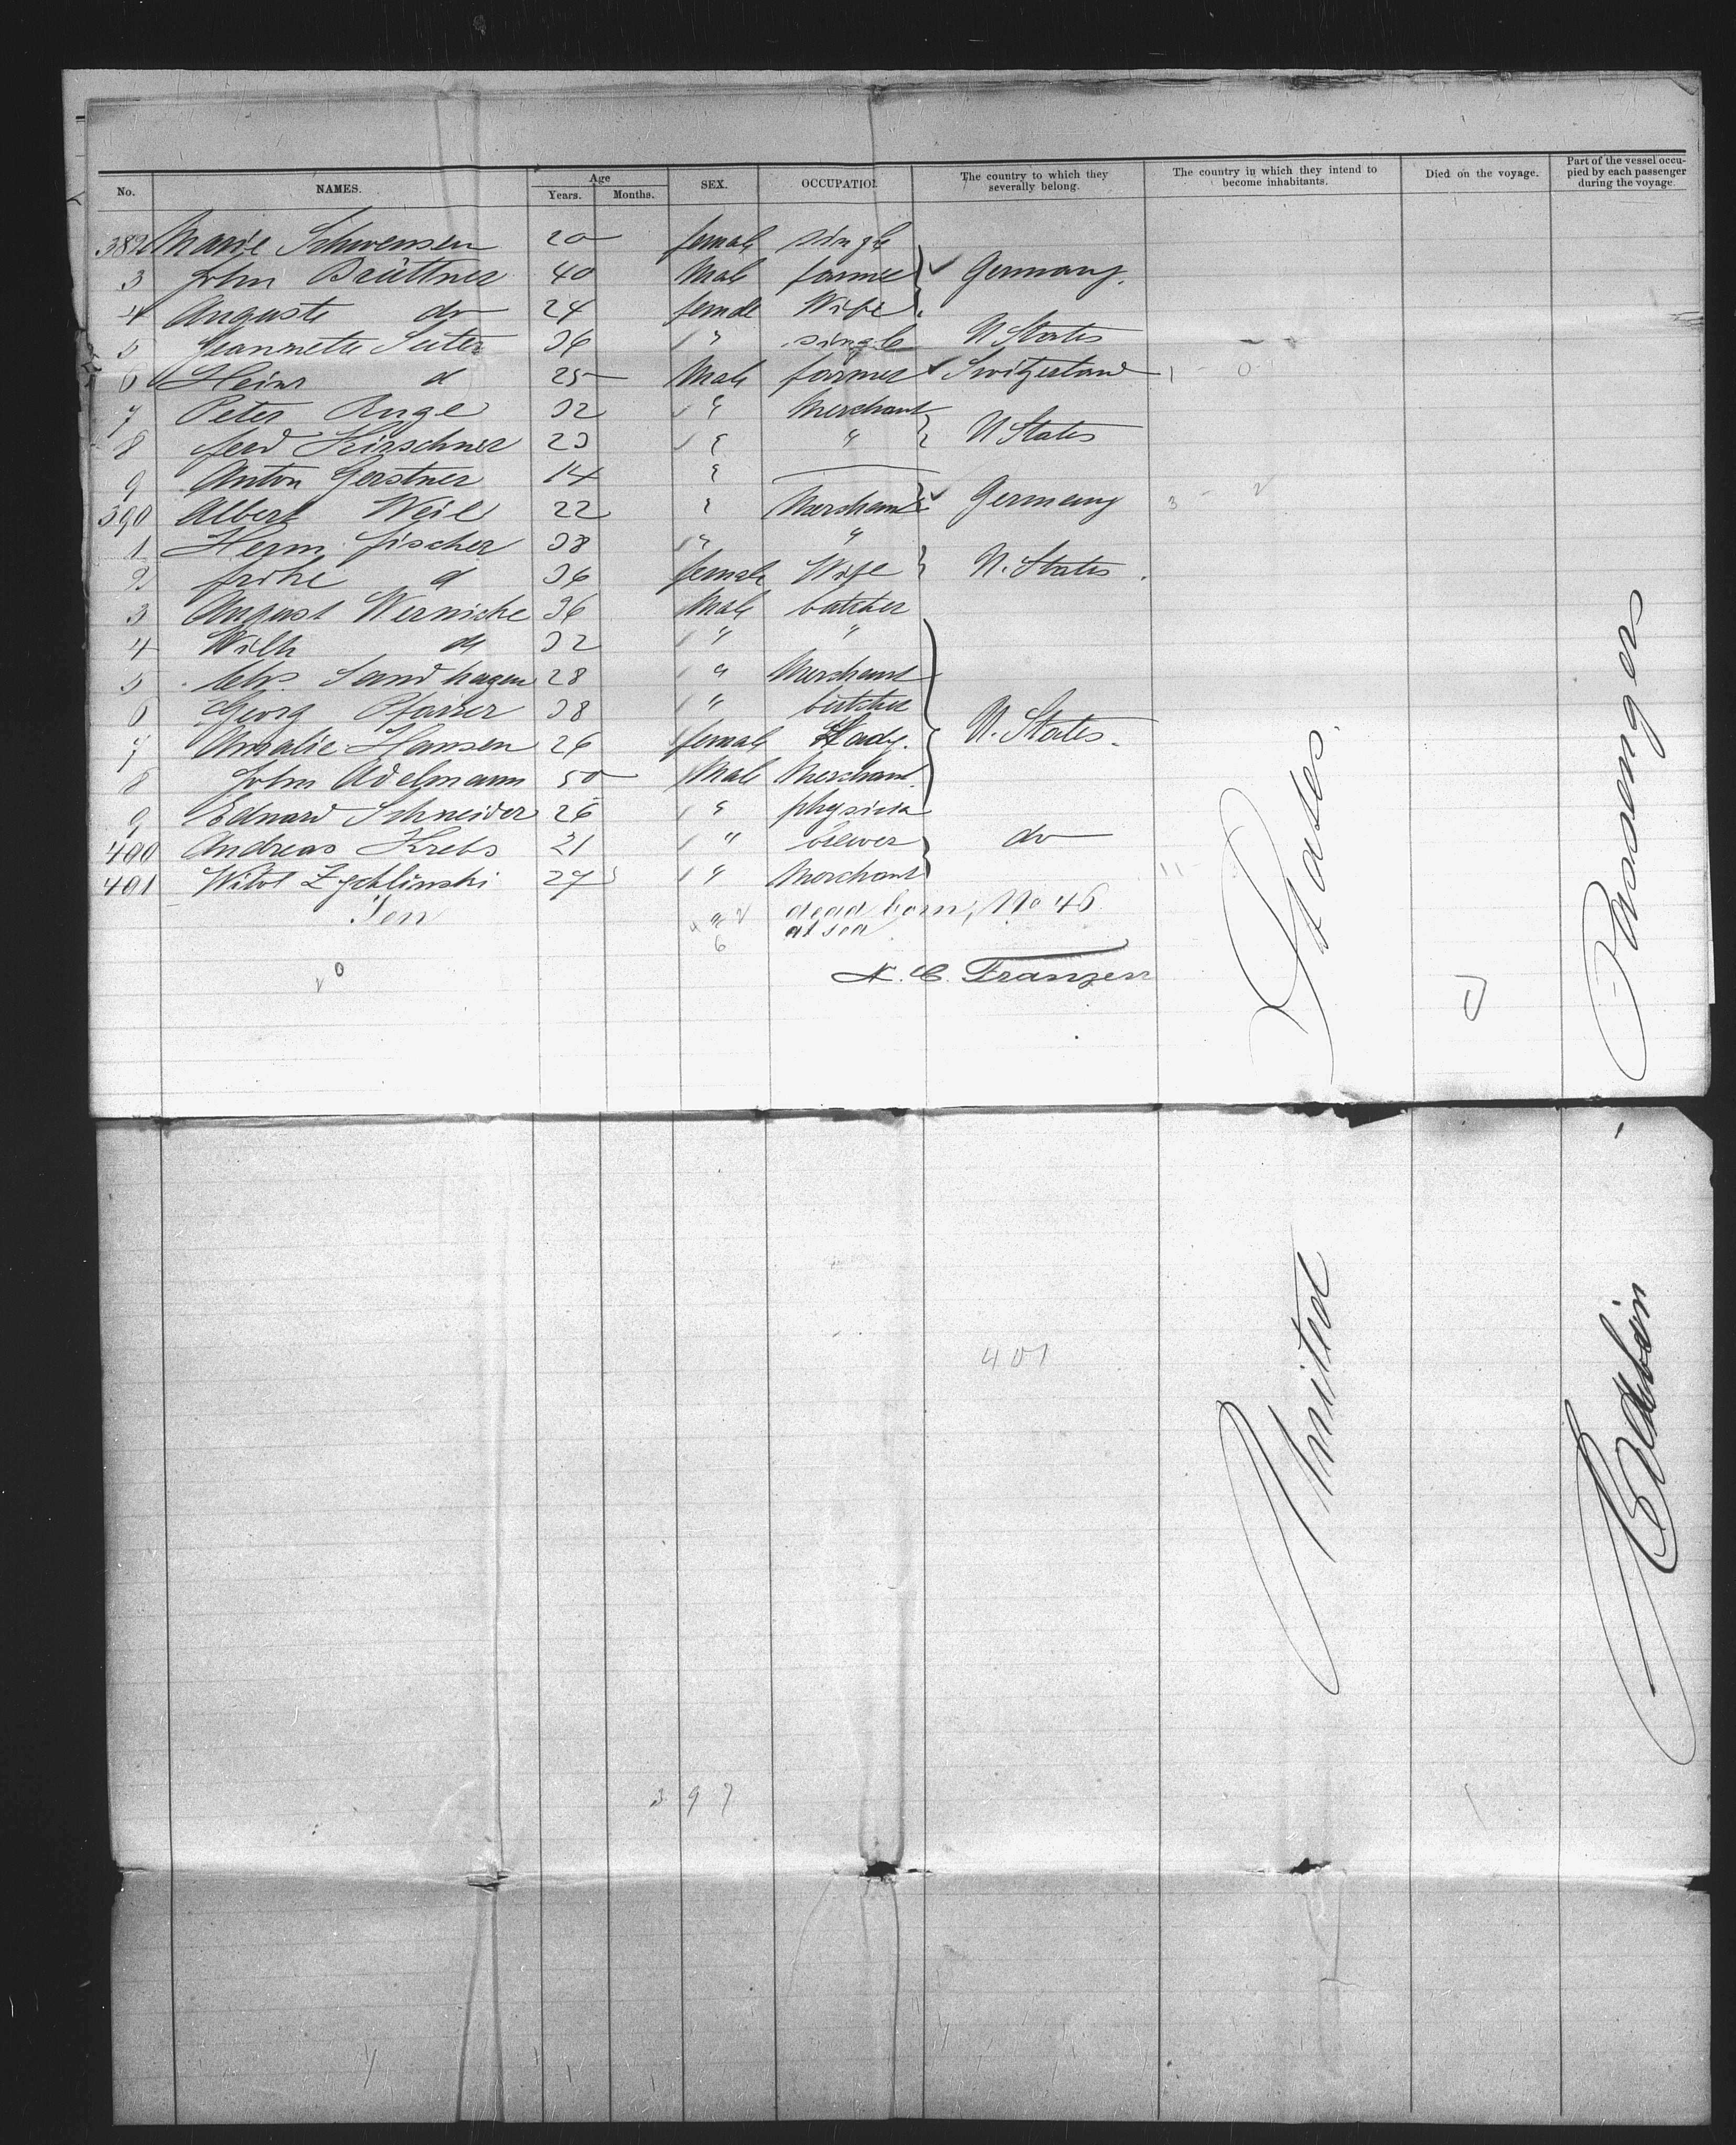 No. NAMES. Age Years. Months. SEX. OCCUPATION. The country to which they severally belong. The country in which they intend to become inhabitants. Died on the voyage. Part of the vessel occupied by each passenger during the voyage.
382 Marie Schwensen 20 female single
3 John Brüttner 40 Male farmer Germany.
4 Auguste do 24 female Wife
5 Jeannette Suter 36 " single U States
6 Heinr d 25 Male farmer Switzerland 1 - 0
7 Peter 32 " Merchant
8 ferd Kirschner 23 " " U States
9 Anton Gerstner 14 "
390 Albert Weil 22 " Merchant Germany 3 - 2
1 Herm fischer 38 " "
2 d 36 female Wife U. States.
3 August Wernicke 36 Male butcher
4 Wilh d 32 " "
5 Chr. Sandhagen 28 " Merchant
6 Georg 38 " butcher
7 Amalie Hansen 26 female Lady. U. States.
8 John Adelmann 50 Male Merchant.
9 Eduard Schneider 26 " physicia
400 Andreas Krebs 21 " brewer do
401 Zychlinski 27 " Merchant 11
Son dead born, No 46
6 at sea
N. C. Franzen
United States.
Cabin Passengers
401
397